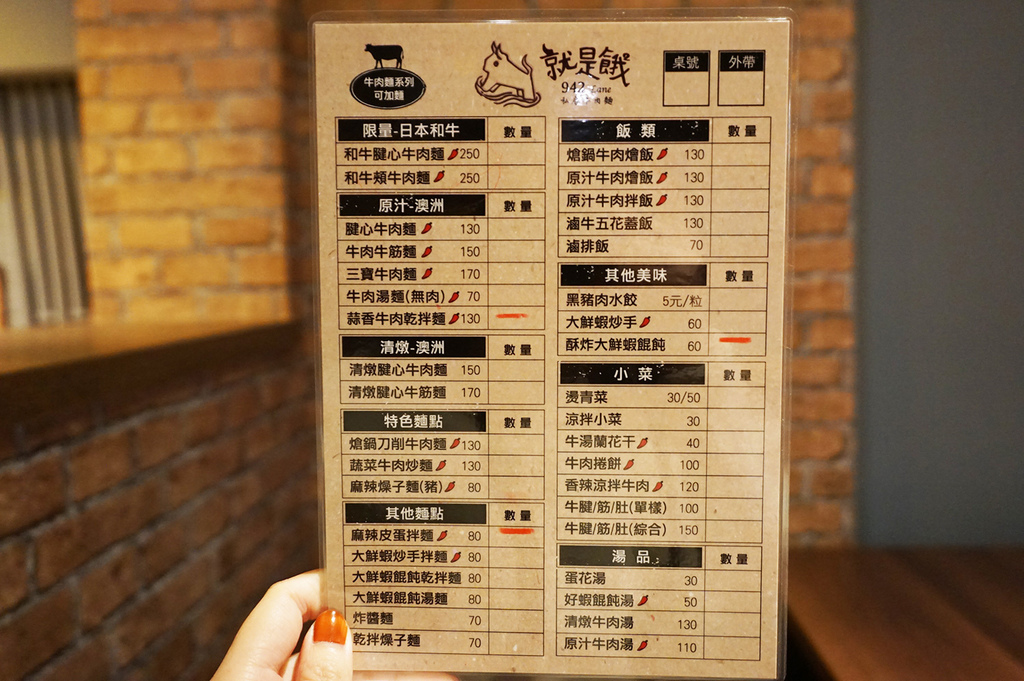 牛肉麵系列
可加麵
就是餓
942 Lane
桌號
外帶
限量-日本和牛 數量
和牛腱心牛肉麵 250
和牛頰牛肉麵 250
原汁-澳洲 數量
腱心牛肉麵 130
牛肉牛筋麵 150
三寶牛肉麵 170
牛肉湯麵(無肉) 70
蒜香牛肉乾拌麵 130
清燉-澳洲 數量
清燉腱心牛肉麵 150
清燉腱心牛筋麵 170
特色麵點 數量
熗鍋刀削牛肉麵 130
蔬菜牛肉炒麵 130
麻辣燥子麵(豬) 80
其他麵點 數量
麻辣皮蛋拌麵 80
大鮮蝦炒手拌麵 80
大鮮蝦餛飩乾拌麵 80
大鮮蝦餛飩湯麵 80
炸醬麵 70
乾拌燥子麵 70
飯類 數量
熗鍋牛肉燴飯 130
原汁牛肉燴飯 130
原汁牛肉拌飯 130
滷牛五花蓋飯 130
滷排飯 70
其他美味 數量
黑豬肉水餃 5元/粒
大鮮蝦炒手 60
酥炸大鮮蝦餛飩 60
小菜 數量
燙青菜 30/50
涼拌小菜 30
牛湯蘭花干 40
牛肉捲餅 100
香辣涼拌牛肉 120
牛腱/筋/肚(單樣) 100
牛腱/筋/肚(綜合) 150
湯品 數量
蛋花湯 30
好蝦餛飩湯 50
清燉牛肉湯 130
原汁牛肉湯 110